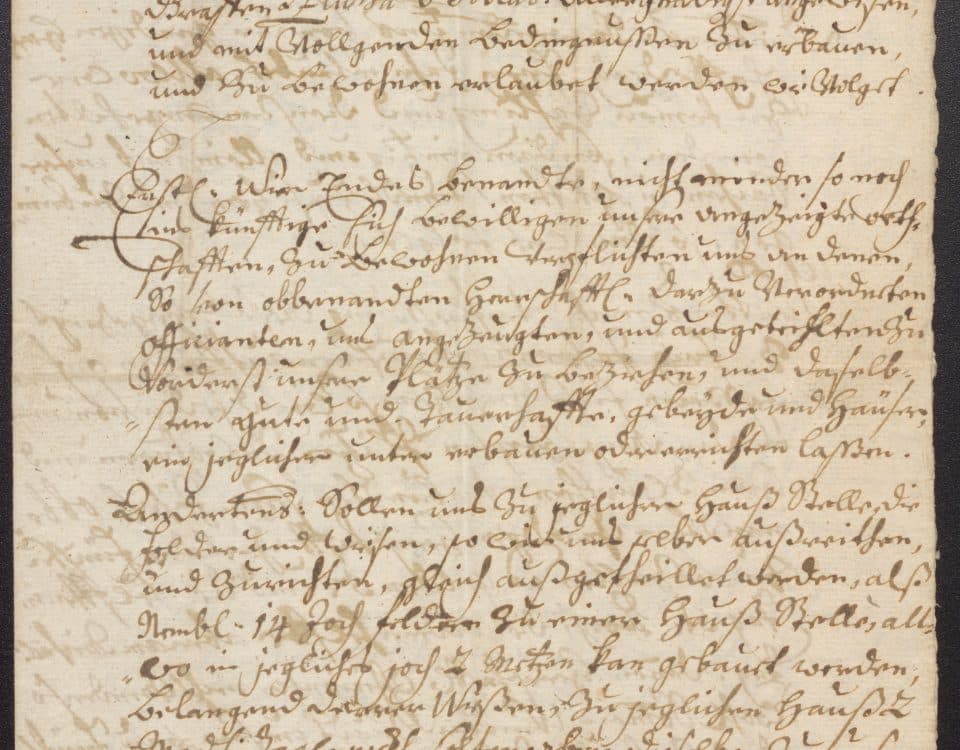 und mit Vollgenden bedingnussen zu erbauen,
und zu bewohnen erlaubet werden wie Volgt.
Erstl: Wier Endes benandte, nicht minder so noch
ins künfftige sich bewilligen unsere angezeigte orth-
schafften, zu bewohnen verpflichten uns an denen,
So von obbenandten Herrschafftl: darzu Verordneten
officianten, uns angezeugten, und ausgetheilten zu
Vorderst unsere Plätze zu beziehen, und daselb-
sten gute und Tauerhaffte, gebeyde und Häuser,
ein jeglicher unter erbauen oder errichten lassen.
Andertens: Sollen uns zu jeglicher Hauß Stelle, die
felder und Wisen, so wir uns selber außreithen,
und zurichten, gleich außgetheillet werden, alß
Nembl: 14 Joch felder zu einer Hauß Stelle, all-
wo in jegliches joch 2 Metzen kan gebauet werden,
belangend derer Wüßen, zu jeglichen Hauß 2